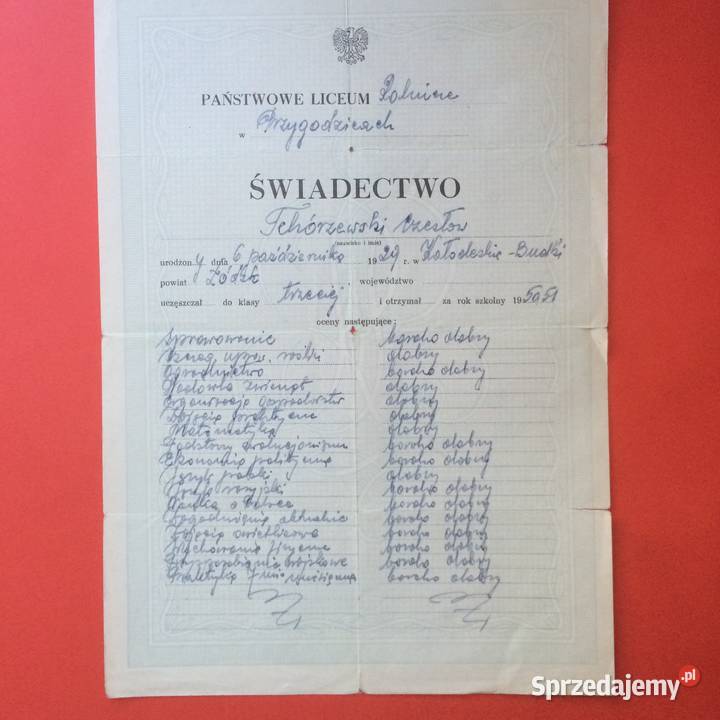 PAŃSTWOWE LICEUM Rolnicze
w Przygodzicach
ŚWIADECTWO
Tchórzewski Czesław
(nazwisko i imię)
urodzony dnia 6 października 1929 r. w -Budki
powiat , województwo
uczęszczał do klasy trzeciej i otrzymał za rok szkolny 1950/51
oceny następujące:
Sprawowanie bardzo dobry
Szczeg. upraw. rośliń dobry
Ogrodnictwo bardzo dobry
Hodowla zwierząt dobry
Organizacja gospodarstw dobry
Zajęcia praktyczne dobry
Matematyka dobry
Podstawy ewolucjonizmu bardzo dobry
Ekonomia polityczna bardzo dobry
Język polski dobry
Język rosyjski bardzo dobry
Nauka o Polsce bardzo dobry
Zagadnienia aktualne bardzo dobry
Zajęcia świetlicowe bardzo dobry
Wychowanie fizyczne bardzo dobry
Przysposobienie wojskowe bardzo dobry
Praktyka bardzo dobry
Sprzedajemy.pl